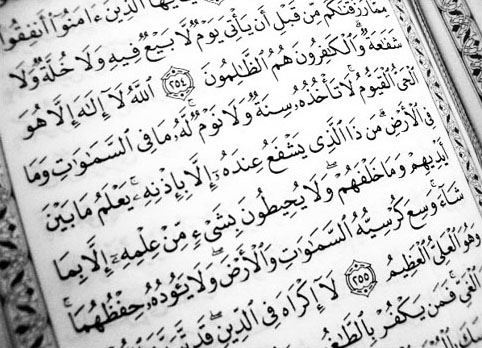 ٱلَّذِينَ ءَامَنُوٓا۟ أَنفِقُوا۟
مِمَّا رَزَقْنَٰكُم مِّن قَبْلِ أَن يَأْتِىَ يَوْمٌ لَّا بَيْعٌ فِيهِ وَلَا خُلَّةٌ وَلَا
شَفَٰعَةٌ ۗ وَٱلْكَٰفِرُونَ هُمُ ٱلظَّٰلِمُونَ ٢٥٤ ٱللَّهُ لَآ إِلَٰهَ إِلَّا هُوَ
ٱلْحَىُّ ٱلْقَيُّومُ ۚ لَا تَأْخُذُهُۥ سِنَةٌ وَلَا نَوْمٌ ۚ لَّهُۥ مَا فِى ٱلسَّمَٰوَٰتِ وَمَا
فِى ٱلْأَرْضِ ۗ مَن ذَا ٱلَّذِى يَشْفَعُ عِندَهُۥٓ إِلَّا بِإِذْنِهِۦ ۚ يَعْلَمُ مَا بَيْنَ
أَيْدِيهِمْ وَمَا خَلْفَهُمْ ۖ وَلَا يُحِيطُونَ بِشَىْءٍ مِّنْ عِلْمِهِۦٓ إِلَّا بِمَا
شَآءَ ۚ وَسِعَ كُرْسِيُّهُ ٱلسَّمَٰوَٰتِ وَٱلْأَرْضَ ۖ وَلَا يَـُٔودُهُۥ حِفْظُهُمَا ۚ
وَهُوَ ٱلْعَلِىُّ ٱلْعَظِيمُ ٢٥٥ لَآ إِكْرَاهَ فِى ٱلدِّينِ ۖ قَد تَّبَيَّنَ
ٱلْغَىِّ ۚ فَمَن يَكْفُرْ بِٱلطَّٰغُوتِ